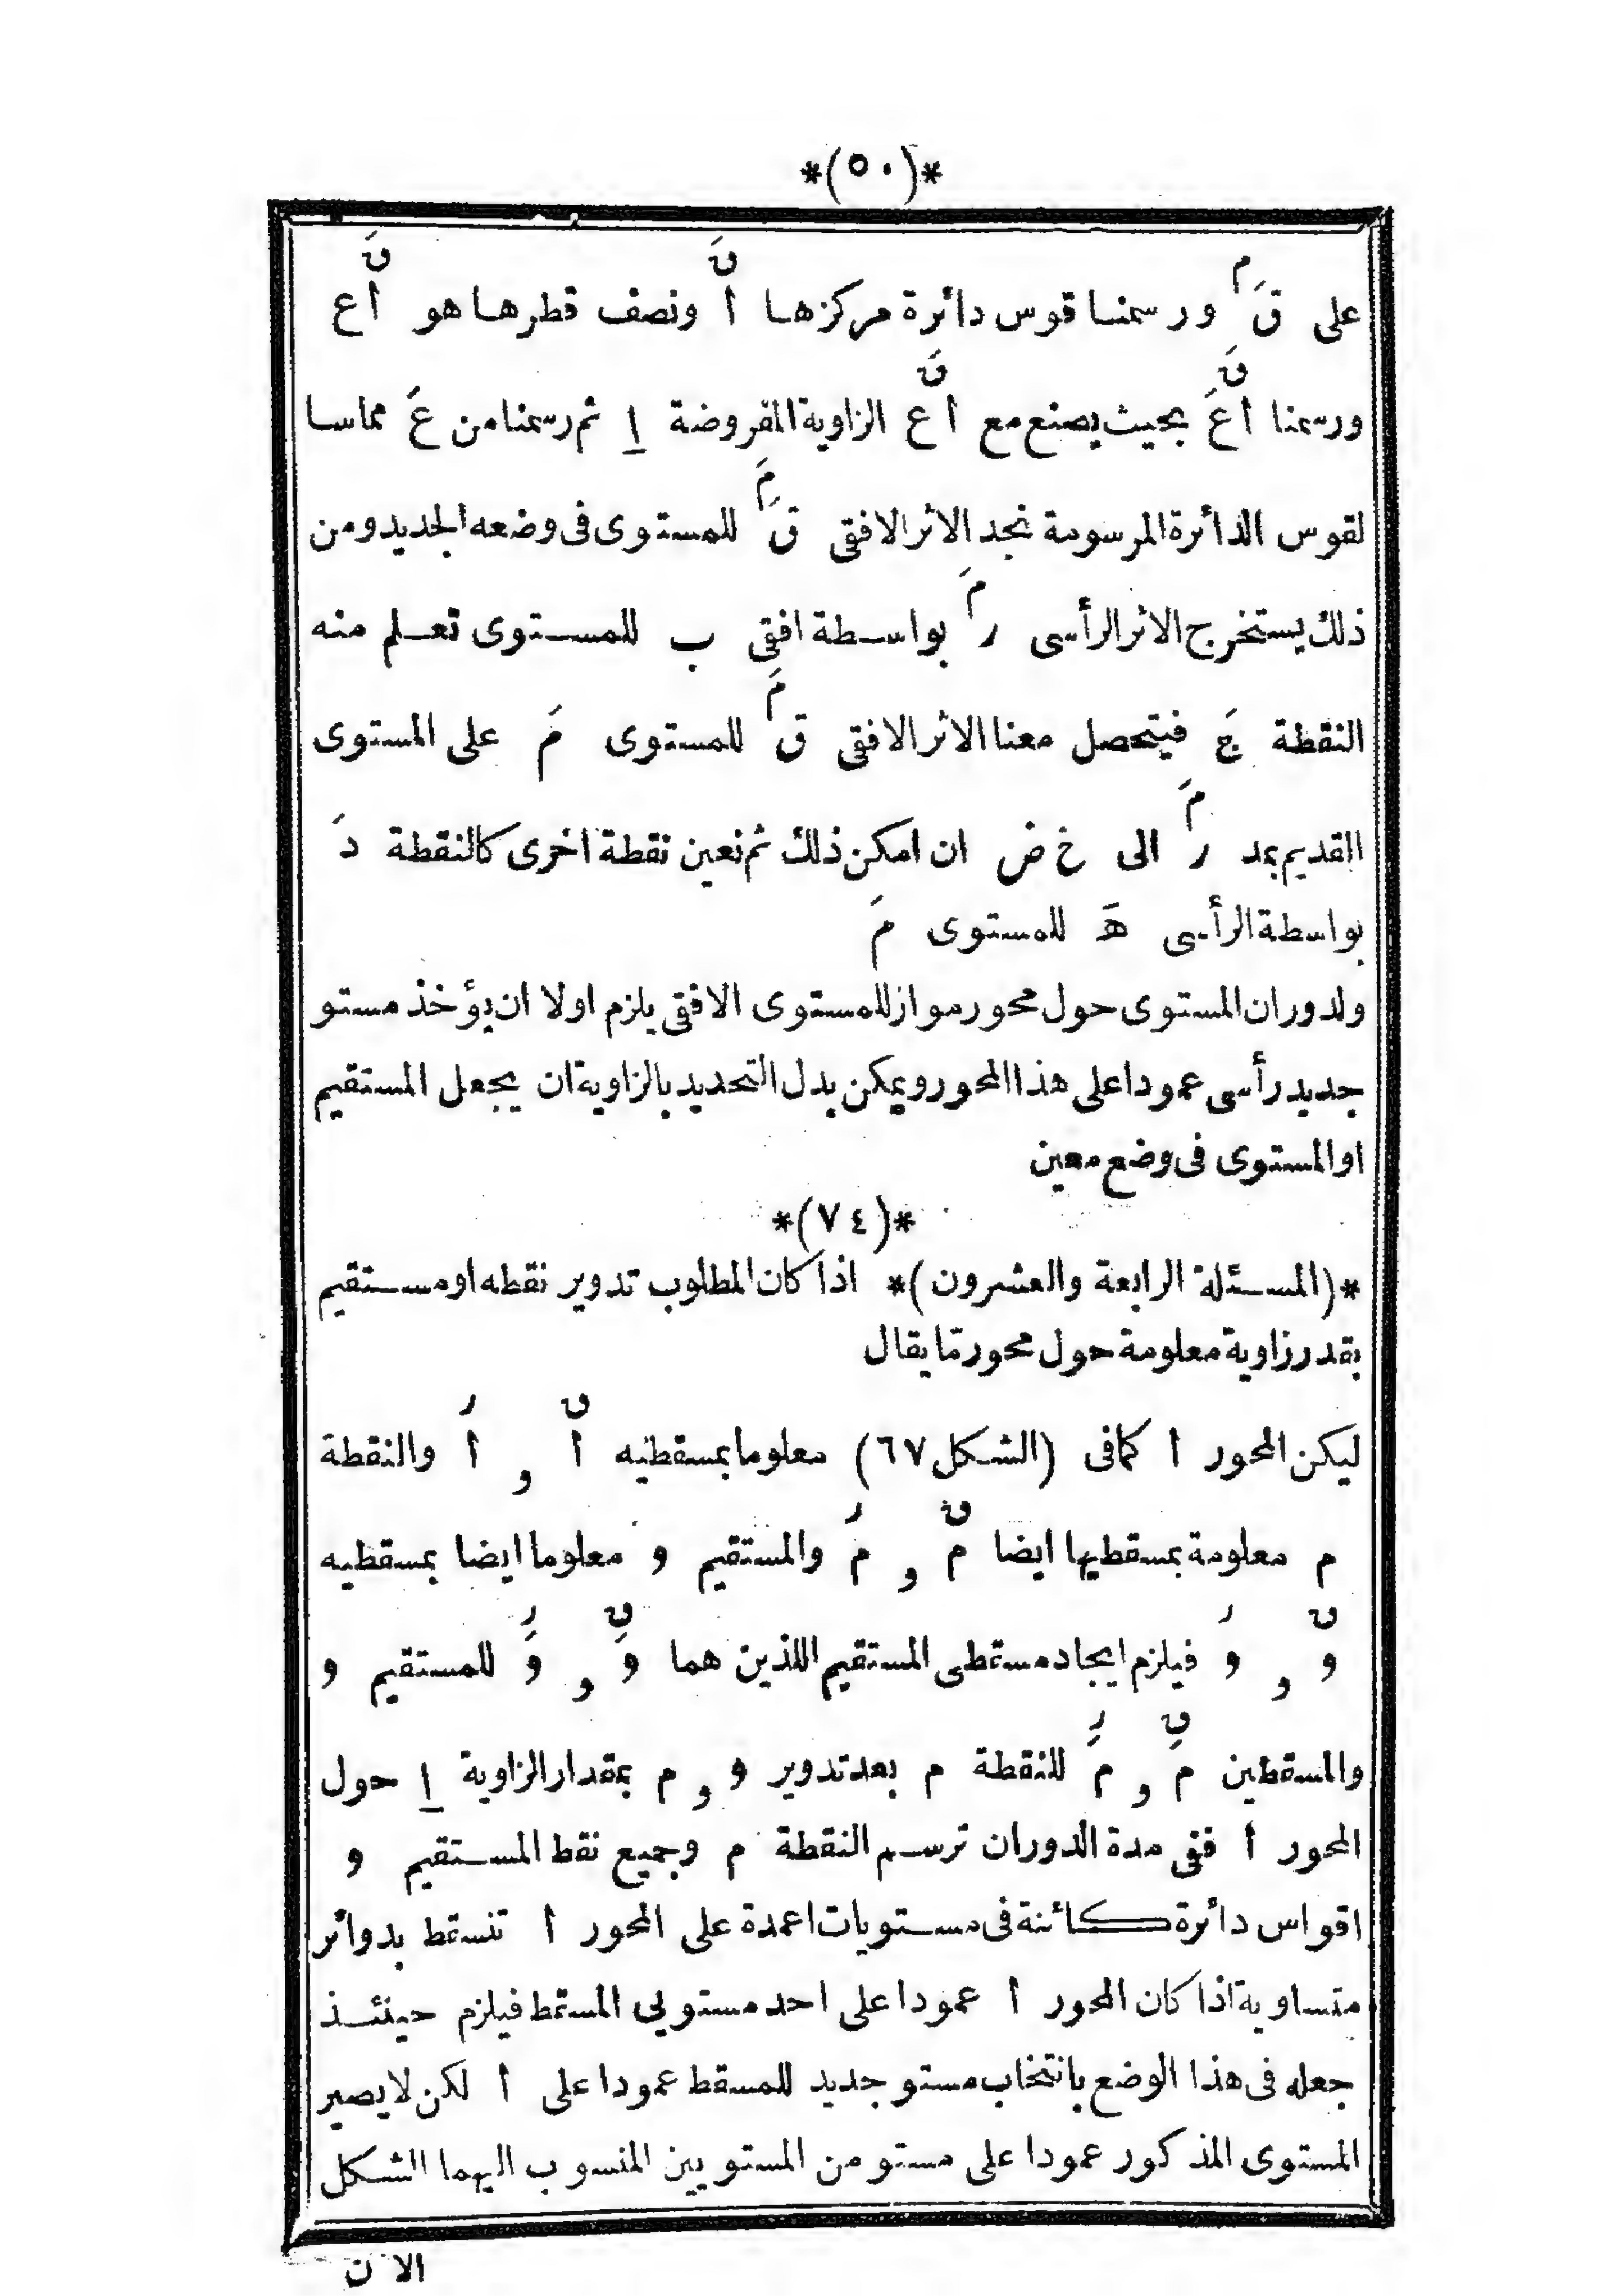 *(٥٠)*
على قَ م ورسمنا قوس دائرة مركزها اَ ق ونصف قطرها هو اَ ق ع
ورسمنا اَ ق عَ بحيث يصنع مع اَ ق ع الزاوية المفروضة ا ثم رسمنا من عَ مماسا
لقوس الدائرة المرسومة نجد الاثر الافقى ق مَ للمستوى فى وضعه الجديد ومن
ذلك يستخرج الاثر الرأسى ر مَ بواسطة افقى ب للمستوى تعلم منه
النقطة جَ فيتحصل معنا الاثر الافقى ق مَ للمستوى مَ على المستوى
القديم بمد ر مَ الى خ ض ان امكن ذلك ثم نعين نقطة اخرى كالنقطة دَ
بواسطة الرأسى هَ للمستوى مَ
ولدوران المستوى حول محور مواز للمستوى الافقى يلزم اولا ان يؤخذ مستو
جديد رأسى عمودا على هذا المحور ويمكن بدل التحديد بالزاوية ان يجعل المستقيم
او المستوى فى وضع معين
*(٧٤)*
*(المسئلة الرابعة والعشرون)* اذا كان المطلوب تدوير نقطه او مستقيم
بقدر زاوية معلومة حول محور مّا يقال
ليكن المحور ا كما فى (الشكل ٦٧) معلوما بمسقطيه اَ ق و اَ ر والنقطة
م معلومة بمسقطيها ايضا مَ ق و مَ ر والمستقيم و معلوما ايضا بمسقطيه
وَ ق و وَ ر فيلزم ايجاد مسقطى المستقيم اللذين هما وَ ق و وَ ر للمستقيم و
والمسقطين مَ ق و مَ ر للنقطة م بعد تدوير و و م بمقدار الزاوية ا حول
المحور ا ففى مدة الدوران ترسم النقطة م وجميع نقط المستقيم و
اقواس دائرة كائنة فى مستويات اعمدة على المحور ا تنسقط بدوائر
متساوية اذا كان المحور ا عمودا على احد مستويى المسقط فيلزم حينئذ
جعله فى هذا الوضع بانتخاب مستو جديد للمسقط عمودا على ا لكن لا يصير
المستوى المذكور عمودا على مستو من المستويين المنسوب اليهما الشكل
الآن